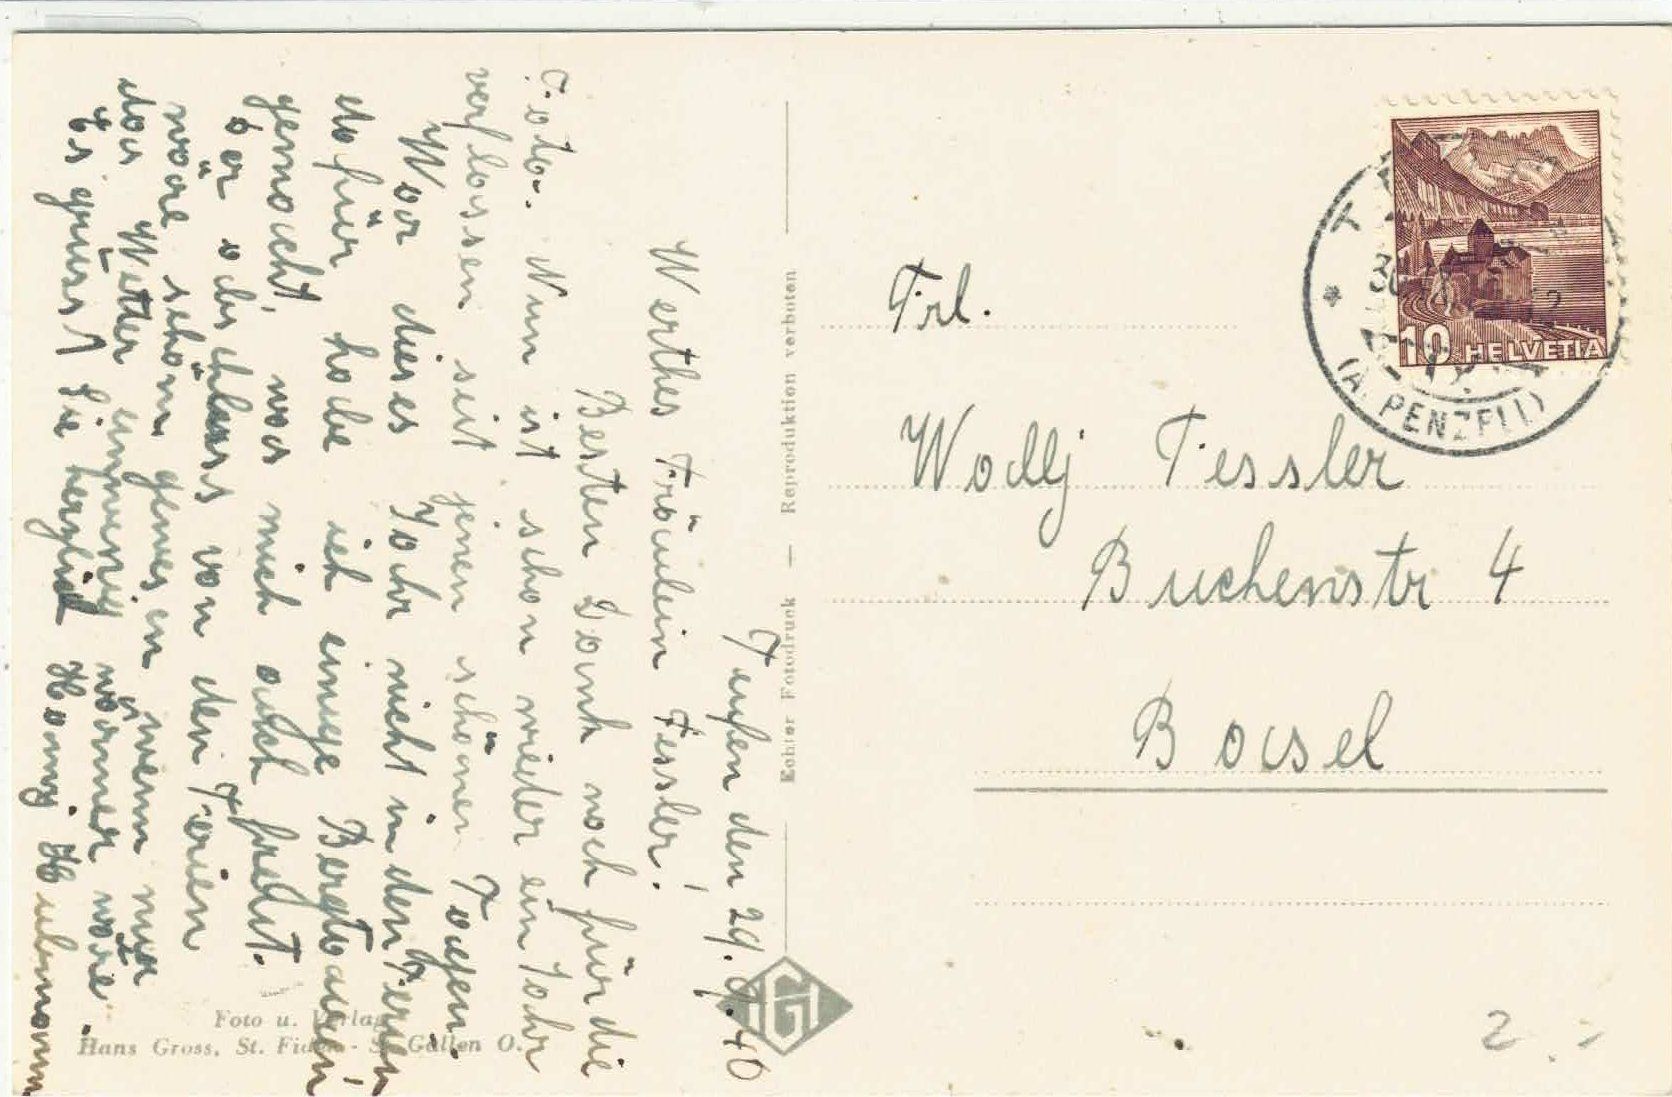 Teufen den 29.9.40
Werthes Fräulein Tessler!
Besten Dank noch für die
Foto. Nun ist schon wieder ein Jahr
verflossen seit jenen schönen Tagen.
War dieses Jahr nicht in den Ferien
dafür habe ich einige Bergtouren
gemacht, was mich auch freut.
Der abschluss von den Ferien
wäre schön gewesen wenn nur
das Wetter einwenig wärmer wäre.
Es grüsst Sie herzlich Hanny Hubmann
Frl.
Wally Tessler
Buchenstr 4
Basel
Echter Fotodruck — Reproduktion verboten
Foto u. Verlag
Hans Gross, St. Fiden - St. Gallen O.
10 HELVETIA
(APPENZELL)
2.-